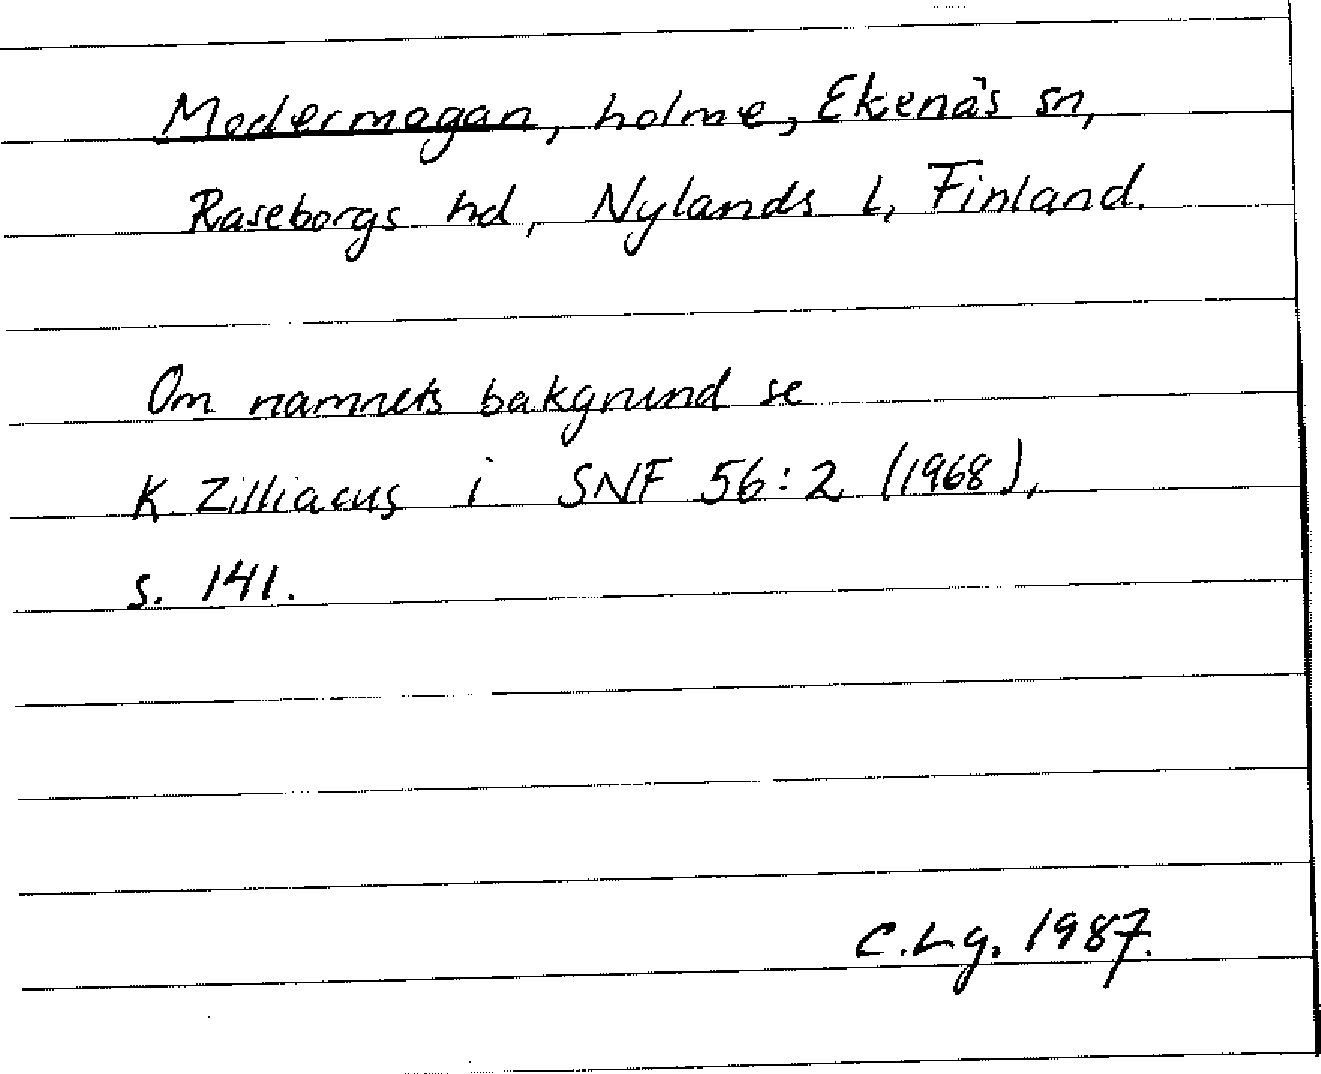 Modermagan, holme, Ekenäs sn,
Raseborgs hd, Nylands l, Finland.
Om namnets bakgrund se
K Zilliacus i SNF 56:2 (1968),
s. 141.
C.Lg. 1987.